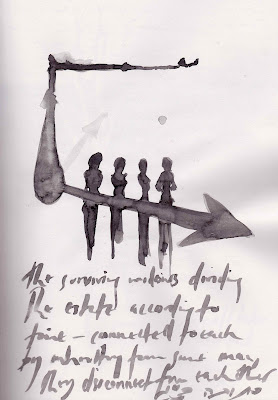 the surviving widows dividing
the estate according to
time – connected to each
by inheriting from same man
they disconnect from each other